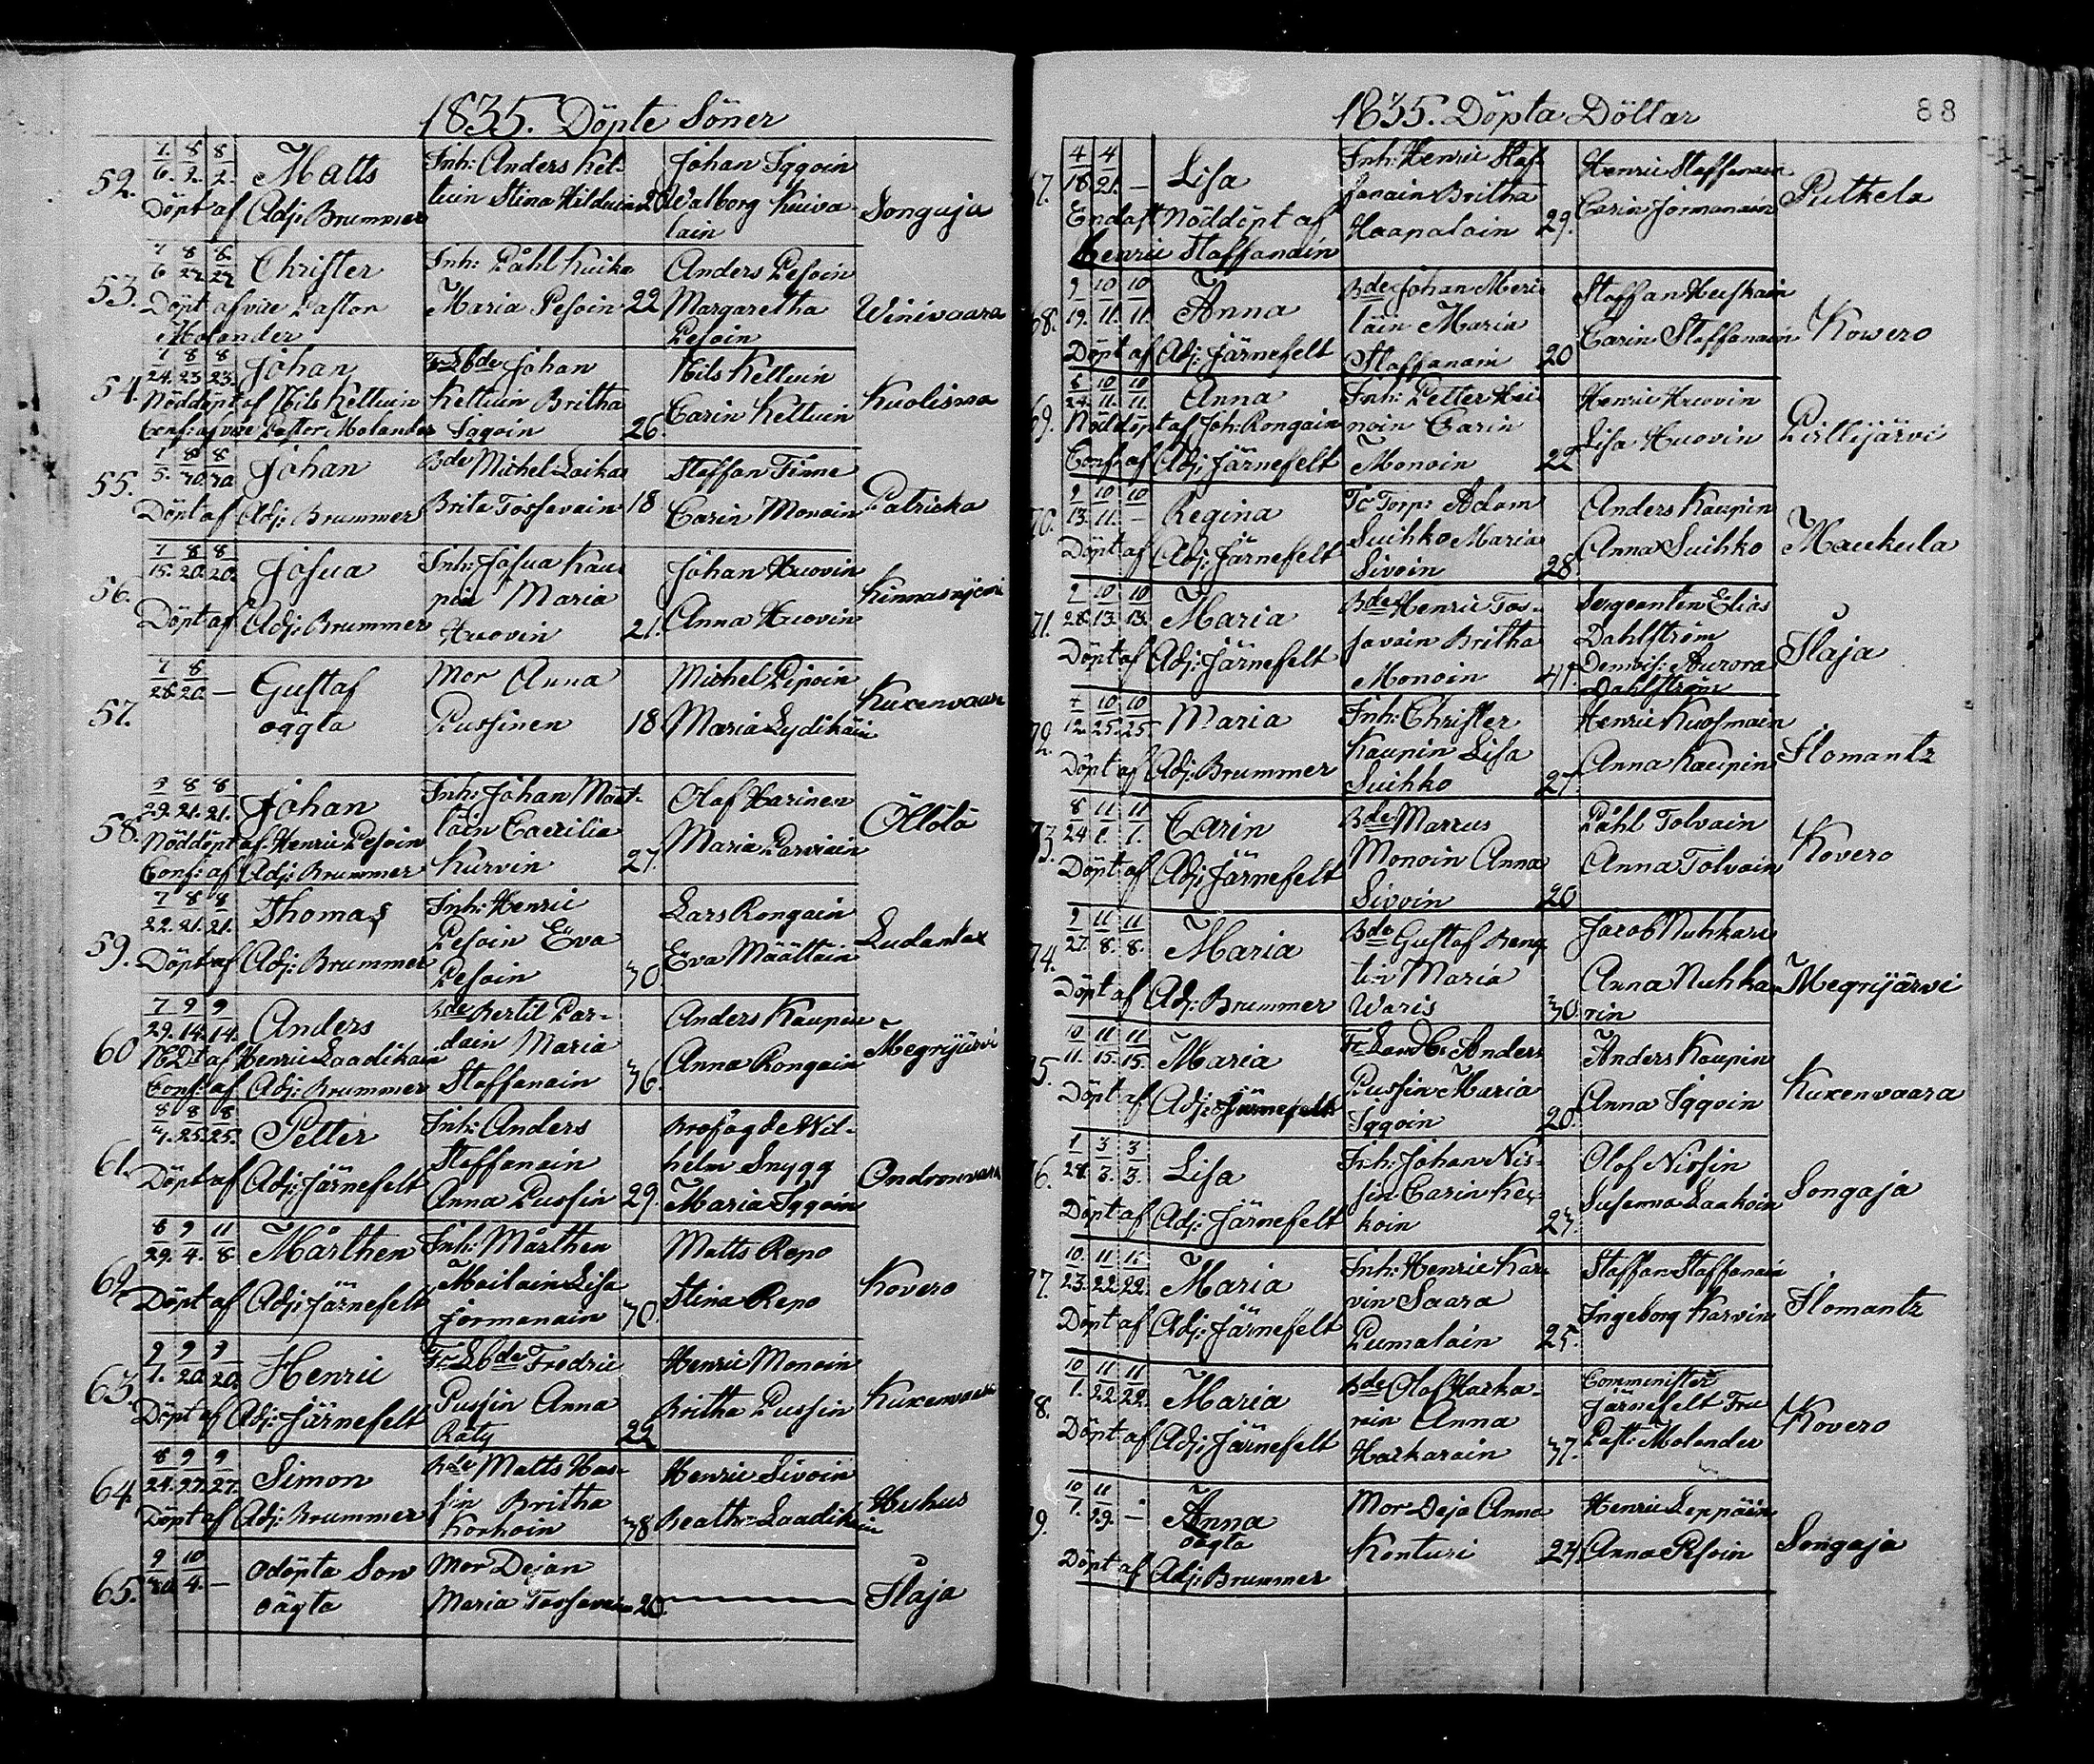 1835. Döpte Söner
52. 7/6. 8/2. 8/2. Matts Inh: Anders Ket- Johan Iggoin
tuin Stina Hilduin 20 Walborg Kuiva- Songaja
Döpt af Adj: Brummer lain
53. 7/6 8/27 8/27 Christer Inh: Påhl Kuika Anders Pesoin
Döpt af vice Pastor Maria Pesoin 22 Margaretha Winivaara
Molander Pesoin
54. 7/24. 8/23 8/23. Johan Lbde Johan Nils Kettuin
Nöddöpt af Nils Kettuin Kettuin Britha Carin Kettuin Kuolisma
Conf: af vice Pastor Molander Iggoin 26.
55. 8/30. 8/30 Johan Bde Michel Laika Staffan Finne
Döpt af Adj: Brummer Brita Tossavain 18 Carin Monoin Patricka
56. 7/15. 8/20. 8/20. Josua Inh: Josua Kau- Johan Huovin
pin Maria Kinnasnjemi
Döpt af Adj: Brummer Huovin 21. Anna Huovin
57. 7/28. 8/20. — Gustaf Mor Anna Michel Piipoin
oägta Pussinen 18 Maria Lydikäin Kuxenvaar
58. 8/21. 8/21. Johan Inh: Johan Määt- Olof Harinen
Nöddöpt af Henric Pesoin täin Caecilia Maria Parviain Öllölä
Conf: af Adj: Brummer Kurvin 27.
59. 7/22. 8/21. 8/21. Thomas Inh: Henric Lars Rongain
Pesoin Eva Ludantax
Döpt af Adj: Brummer Pesoin 30. Eva Määttäin
60 7/29. 9/14. 9/14. Anders Bde Bertil Par- Anders Kaupin
N. Dt af Henric Laadikain dain Maria Anna Rongain Megrijärvi
Conf: af Adj: Brummer Staffanain 36.
61. 8/25. 8/25. Petter Inh: Anders Brofogde Wil-
Staffanain helm Snygg
Döpt af Adj: Järnefelt Anna Pussin 29. Maria Iggoin
62. 8/29. 9/4. 11/8. Mårthen Inh: Mårthen Matts Repo
Moilain Lisa Kovero
Döpt af Adj: Järnefelt Jormanain 30. Stina Repo
63. 9/1. 9/20. 9/20. Henric Fr Lbde Fredric Henric Monoin
Döpt af Adj: Järnefelt Pussin Anna Britha Pussin Kuxenvaara
Räty 22
64. 8/24. 9/27. 9/27. Simon Bde Matts Has- Henric Sivoin
sin Britha Huhus
Döpt af Adj: Brummer Korhoin 38 Beatha Laadikain
65. 9/30. 10/4. — odöpta Son Mor Dejan
oägta Maria Tossavain 20. Ilaja
1835. Döpta Döttar 88
67. 4/18. 4/21. — Lisa Inh: Henric Staf- Henric Staffanain
fanain Britha Carin Jormanain Putkela
Endast Nöddöpt af Haapalain 29.
Henric Staffanain
68. 9/19. 10/11. 10/11. Anna Bde Johan Meri- Staffan Heiskain
läin Maria Carin Staffanain Kowero
Döpt af Adj: Järnefelt Staffanain 20
69. 8/24. 10/11. 10/11. Anna Inh: Petter Hei- Henric Huovin
Nöddöpt af Joh: Rongain noin Carin Lisa Huovin Pirttijärvi
Conf: af Adj: Järnefelt Monoin 22
70. 9/13. 10/11. — Regina Torp: Adam Anders Kaupin
Suihko Maria Anna Suihko Maukula
Döpt af Adj: Järnefelt Sivoin 28
71. 9/28. 10/13. 10/13. Maria Bde Henric Tos- Sergeanten Elias
savain Britha Dahlström Ilaja
Döpt af Adj: Järnefelt Monoin 41. Demois: Aurora
Dahlström
72. 10/25. 10/25. Maria Inh: Christer Henric Kuosmain
Kaupin Lisa Anna Kaupin Ilomantz
Döpt af Adj: Brummer Suihko 27.
73. 8/24. 11/1. 11/1. Carin Bde Marcus Påhl Tolvain
Monoin Anna Anna Tolvain Kovero
Döpt af Adj: Järnefelt Sivoin 20
74. 9/27. 11/8. 11/8. Maria Bde Gustaf Beng- Jacob Nuhkari
tin Maria Anna Nuhka- Megrijärvi
Döpt af Adj: Brummer Waris 30. rin
75. 10/11. 11/15. 11/15. Maria Fr Landb: Anders Anders Kaupin
Pussin Maria Kuxenvaara
Döpt af Adj: Järnefelt Iggoin 20. Anna Iggoin
76. 1/28. 3/3. 3/3. Lisa Inh: Johan Nis- Olof Nissin
sin Carin Susanna Laakoin Songaja
Döpt af Adj: Järnefelt koin 23.
77. 10/23. 11/22. 11/22. Maria Inh: Henric Kar- Staffan Staffanain
vin Saara Ingeborg Karvin Ilomantz
Döpt af Adj: Järnefelt Pumalain 25.
78. 10/1. 11/22. 11/22. Maria Bde Olof Harka- Comminister
rain Anna Järnefelt Fru
Döpt af Adj: Järnefelt Harkarain 37. Past: Molander Kovero
79. 10/7. 11/29. — Anna Mor Deja Anna Henric Leppäin
oägta Konturi 24. Anna Pesoin Songaja
Döpt af Adj: Brummer